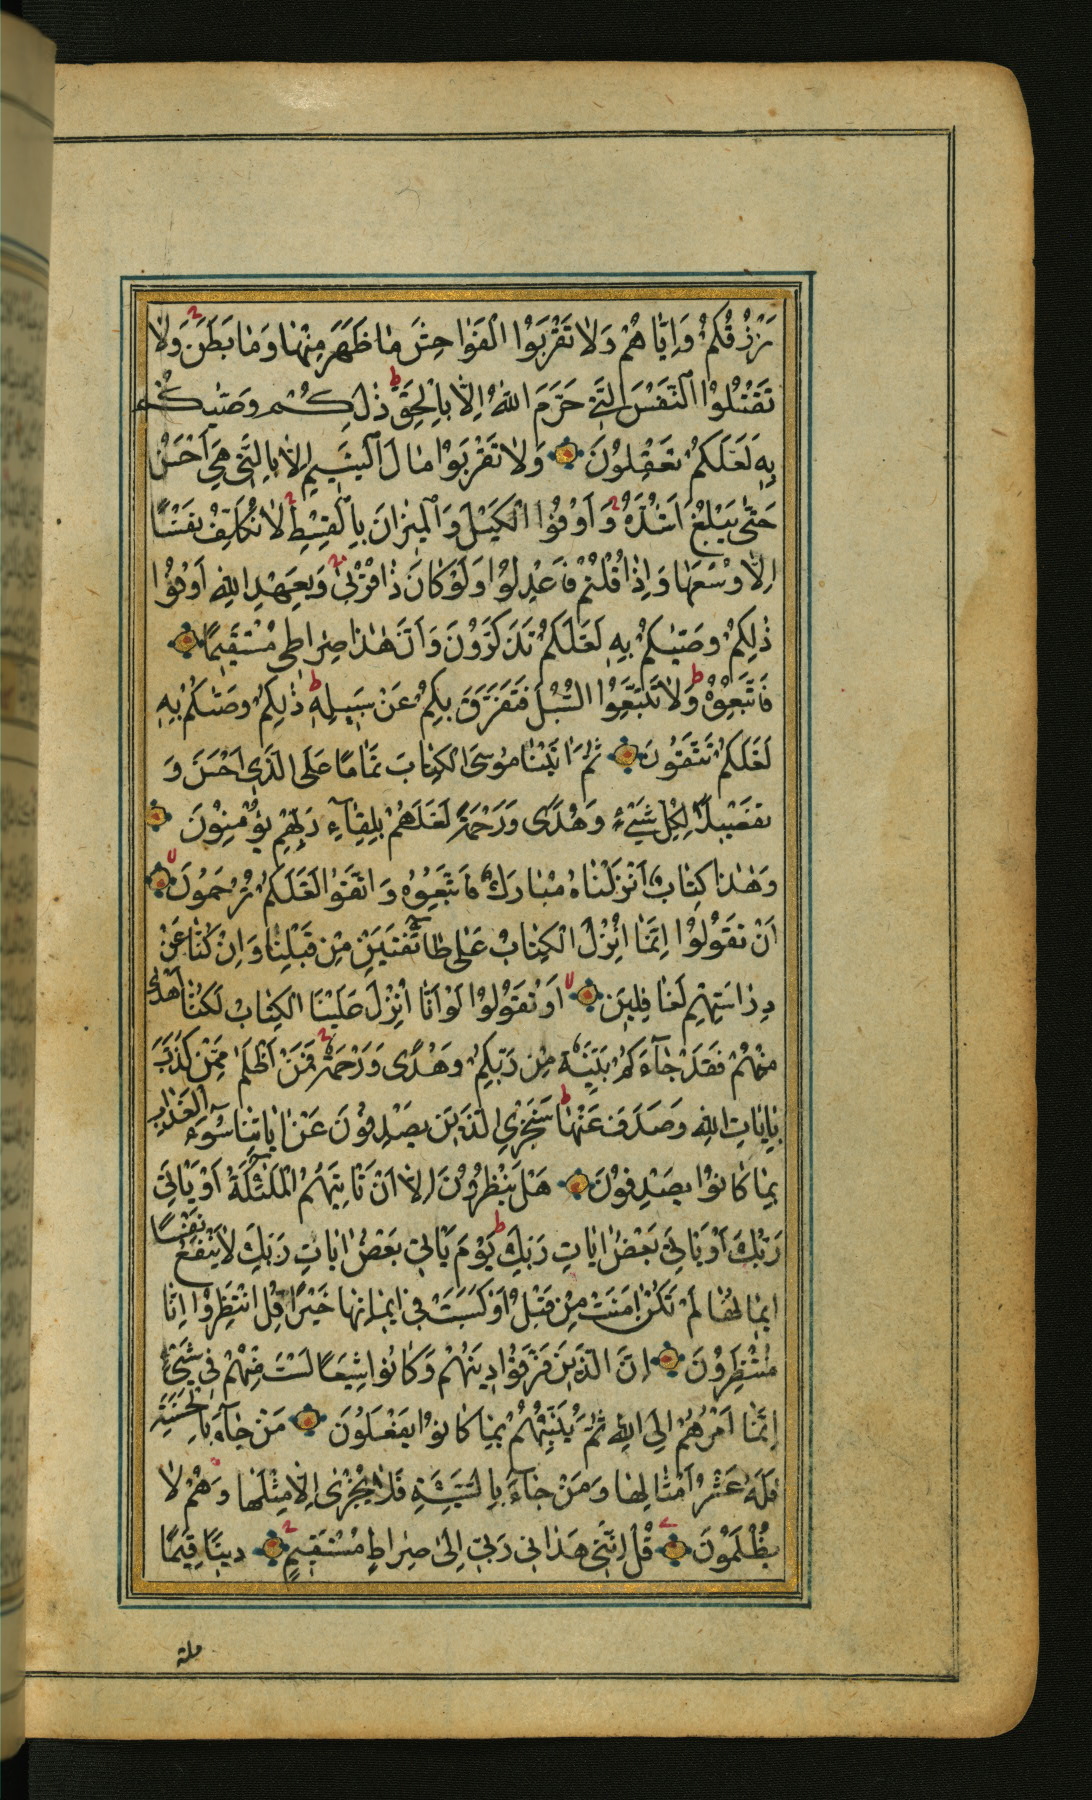 نَرْزُقُكُمْ وَاِيَّاهُمْ وَلَا تَقْرَبُوا الْفَوَاحِشَ مَا ظَهَرَ مِنْهَا وَمَا بَطَنَ وَلَا
تَقْتُلُوا النَّفْسَ الَّتِي حَرَّمَ اللّٰهُ اِلَّا بِالْحَقِّ ط ذٰلِكُمْ وَصّٰيكُمْ
بِهٖ لَعَلَّكُمْ تَعْقِلُونَ وَلَا تَقْرَبُوا مَالَ الْيَتِيمِ اِلَّا بِالَّتِي هِيَ اَحْسَنُ
حَتّٰى يَبْلُغَ اَشُدَّهُ وَاَوْفُوا الْكَيْلَ وَالْمِيزَانَ بِالْقِسْطِ لَا نُكَلِّفُ نَفْسًا
اِلَّا وُسْعَهَا وَاِذَا قُلْتُمْ فَاعْدِلُوا وَلَوْ كَانَ ذَا قُرْبٰى وَبِعَهْدِ اللّٰهِ اَوْفُوا
ذٰلِكُمْ وَصّٰيكُمْ بِهٖ لَعَلَّكُمْ تَذَكَّرُونَ وَاَنَّ هٰذَا صِرَاطِي مُسْتَقِيمًا
فَاتَّبِعُوهُ ط وَلَا تَتَّبِعُوا السُّبُلَ فَتَفَرَّقَ بِكُمْ عَنْ سَبِيلِهٖ ط ذٰلِكُمْ وَصّٰيكُمْ بِهٖ
لَعَلَّكُمْ تَتَّقُونَ ثُمَّ اٰتَيْنَا مُوسَى الْكِتَابَ تَمَامًا عَلَى الَّذِي اَحْسَنَ وَ
تَفْصِيلًا لِكُلِّ شَيْءٍ وَهُدًى وَرَحْمَةً لَعَلَّهُمْ بِلِقَاءِ رَبِّهِمْ يُؤْمِنُونَ
وَهٰذَا كِتَابٌ اَنْزَلْنَاهُ مُبَارَكٌ فَاتَّبِعُوهُ وَاتَّقُوا لَعَلَّكُمْ تُرْحَمُونَ
اَنْ تَقُولُوا اِنَّمَا اُنْزِلَ الْكِتَابُ عَلٰى طَائِفَتَيْنِ مِنْ قَبْلِنَا وَاِنْ كُنَّا عَنْ
دِرَاسَتِهِمْ لَغَافِلِينَ اَوْ تَقُولُوا لَوْ اَنَّا اُنْزِلَ عَلَيْنَا الْكِتَابُ لَكُنَّا اَهْدٰى
مِنْهُمْ فَقَدْ جَاءَكُمْ بَيِّنَةٌ مِنْ رَبِّكُمْ وَهُدًى وَرَحْمَةٌ فَمَنْ اَظْلَمُ مِمَّنْ كَذَّبَ
بِاٰيَاتِ اللّٰهِ وَصَدَفَ عَنْهَا ط سَنَجْزِي الَّذِينَ يَصْدِفُونَ عَنْ اٰيَاتِنَا سُوءَ الْعَذَابِ
بِمَا كَانُوا يَصْدِفُونَ هَلْ يَنْظُرُونَ اِلَّا اَنْ تَأْتِيَهُمُ الْمَلٰئِكَةُ اَوْ يَأْتِيَ
رَبُّكَ اَوْ يَأْتِيَ بَعْضُ اٰيَاتِ رَبِّكَ ط يَوْمَ يَأْتِي بَعْضُ اٰيَاتِ رَبِّكَ لَا يَنْفَعُ نَفْسًا
اِيمَانُهَا لَمْ تَكُنْ اٰمَنَتْ مِنْ قَبْلُ اَوْ كَسَبَتْ فِي اِيمَانِهَا خَيْرًا قُلِ انْتَظِرُوا اِنَّا
مُنْتَظِرُونَ اِنَّ الَّذِينَ فَرَّقُوا دِينَهُمْ وَكَانُوا شِيَعًا لَسْتَ مِنْهُمْ فِي شَيْءٍ
اِنَّمَا اَمْرُهُمْ اِلَى اللّٰهِ ثُمَّ يُنَبِّئُهُمْ بِمَا كَانُوا يَفْعَلُونَ مَنْ جَاءَ بِالْحَسَنَةِ
فَلَهُ عَشْرُ اَمْثَالِهَا وَمَنْ جَاءَ بِالسَّيِّئَةِ فَلَا يُجْزٰى اِلَّا مِثْلَهَا وَهُمْ لَا
يُظْلَمُونَ قُلْ اِنَّنِي هَدَانِي رَبِّي اِلٰى صِرَاطٍ مُسْتَقِيمٍ دِينًا قِيَمًا
ملة